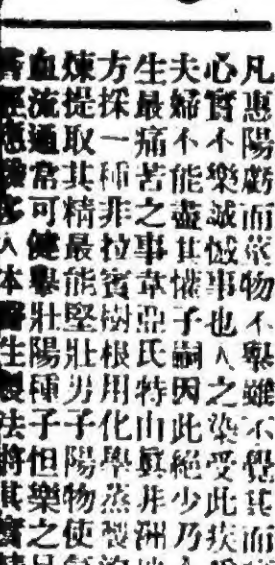 凡患陽虧而萎物不舉雖不覺其
心實不樂誠憾事也人之染受此疾而
夫婦不能盡其懽子嗣因此絕少乃
生最痛苦之事草亞氏特由眞非洲地
方採一種非拉賓樹根用化學蒸製
煉提取其精最能堅壯男子陽物使
血流通常可健舉壯陽種子但樂之
多人体生製法將其實